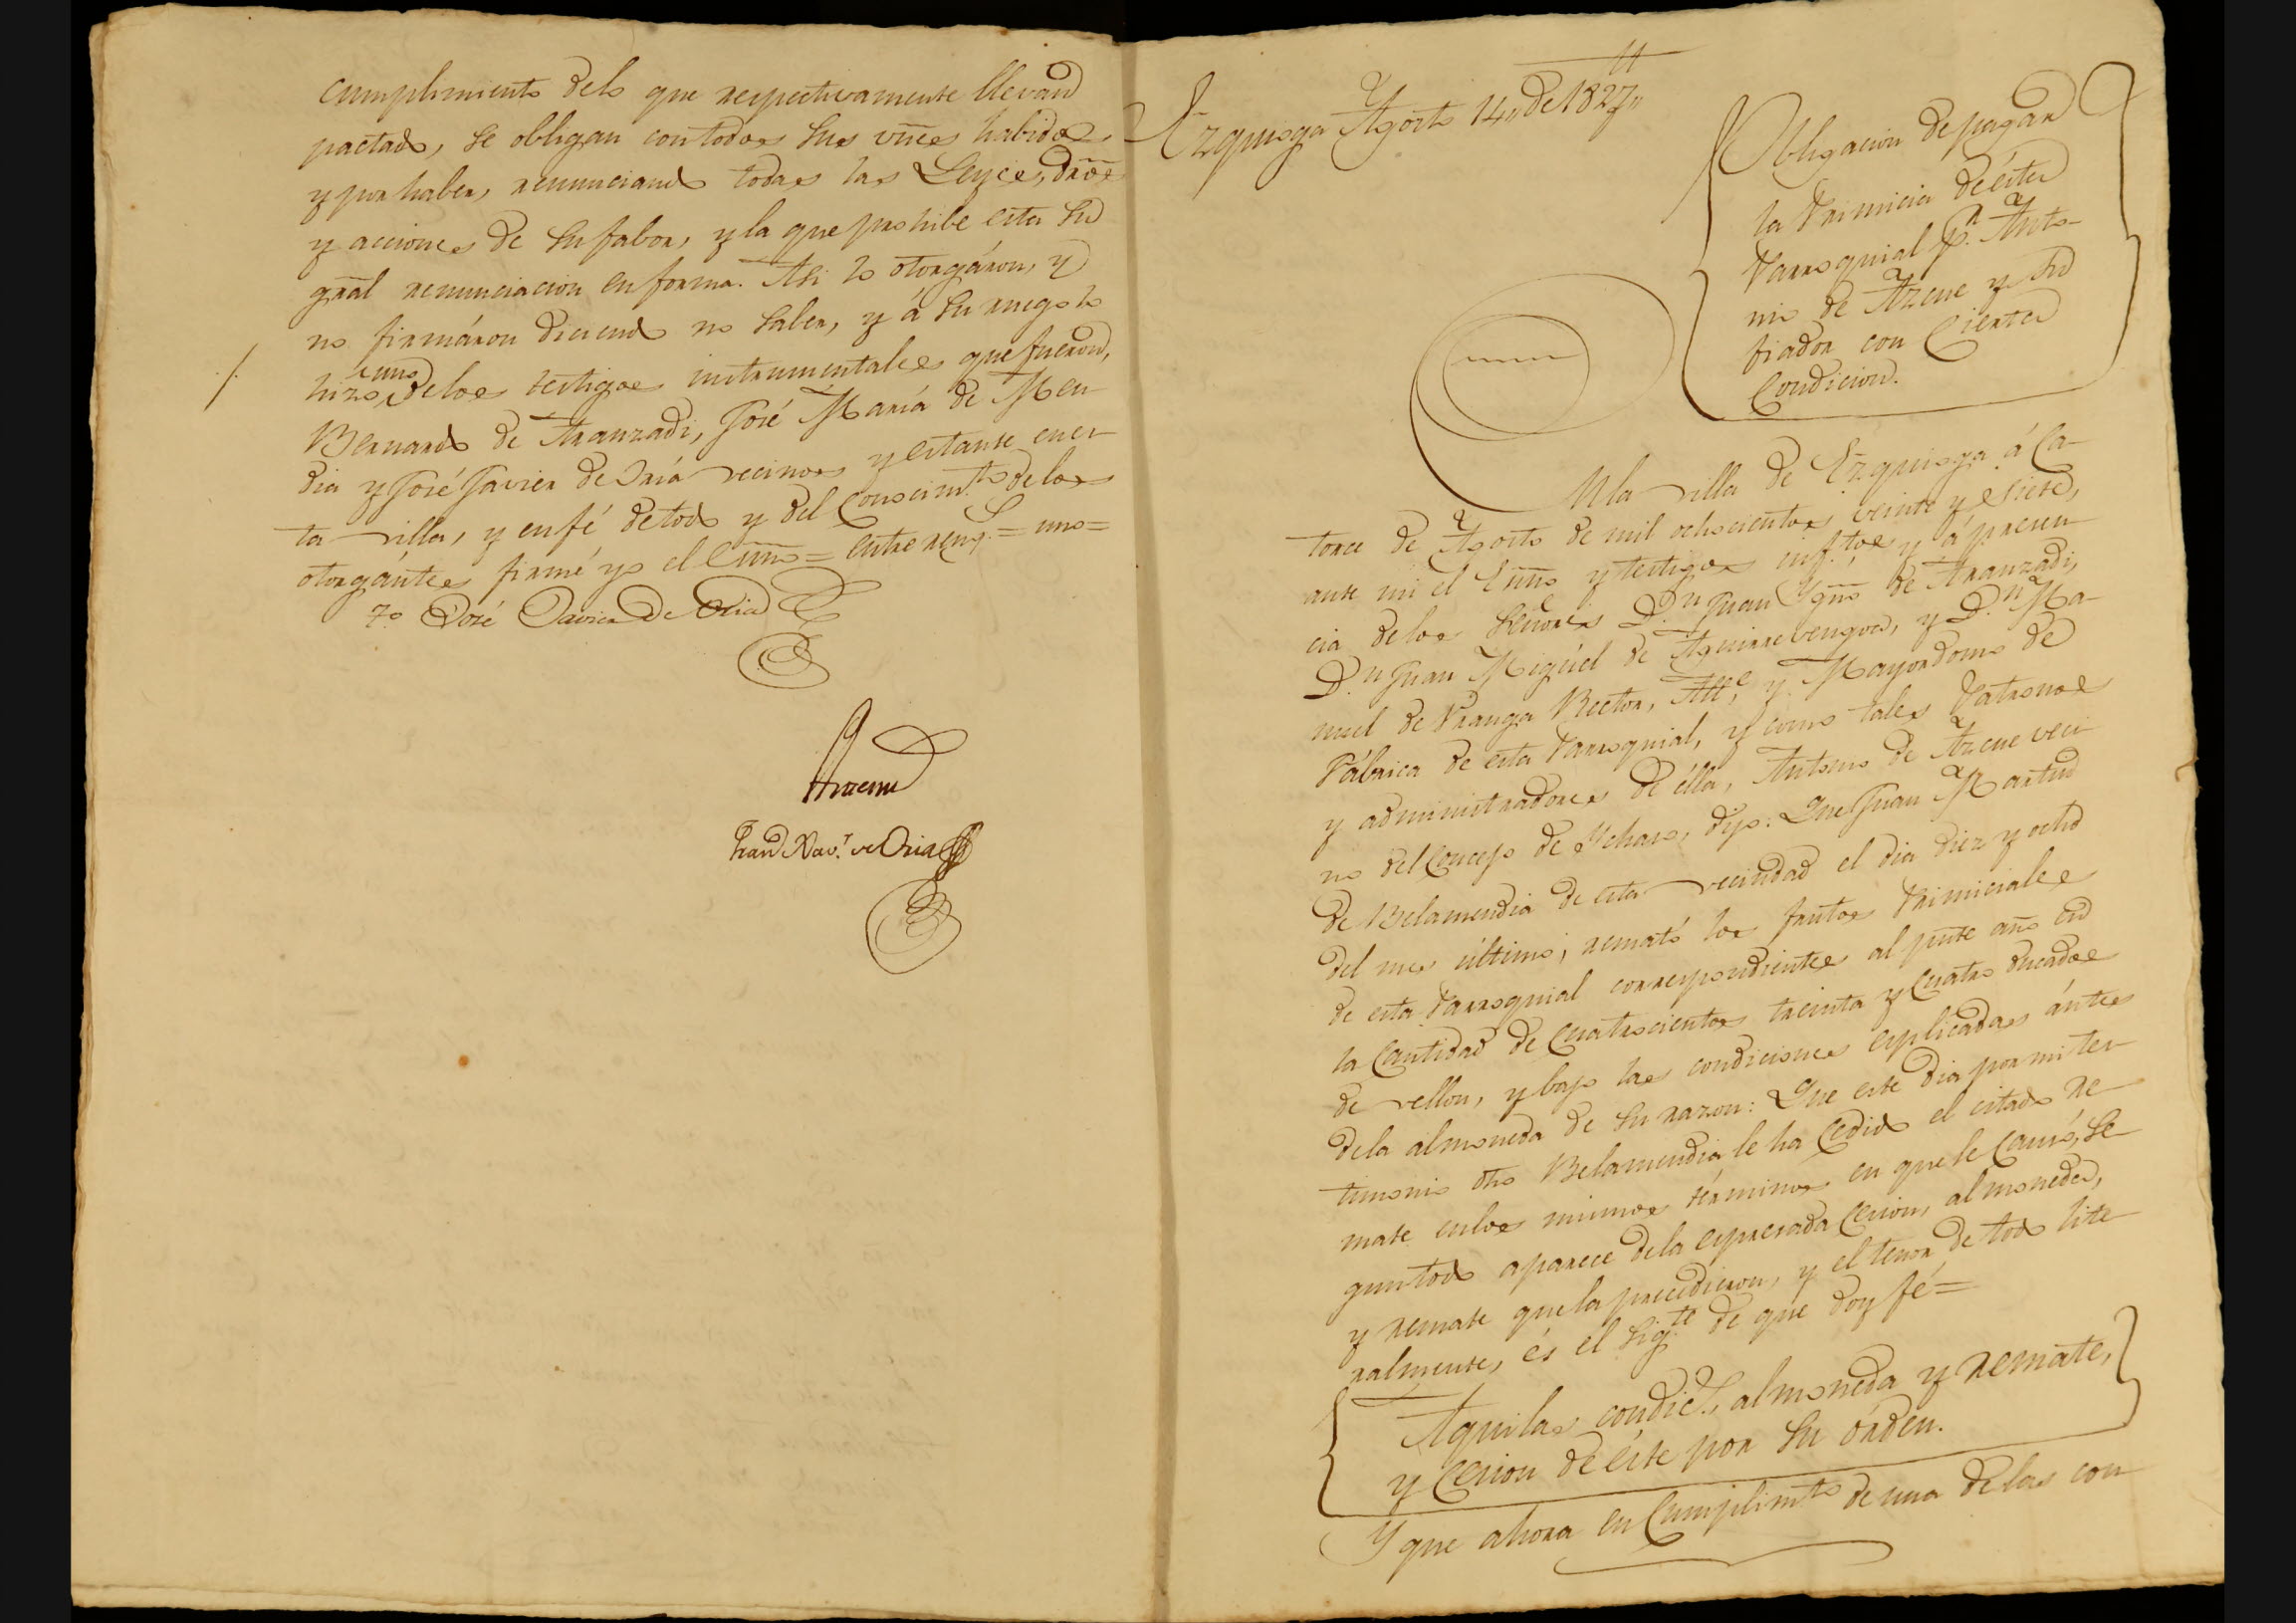 cumplimiento delo que respectivamente llevan
pactado, se obligan contodos sus vnes habidos,
y por haber, renunciando todas las Leyes, dros
y acciones de su fabor, y la que prohibe esta su
gral renunciacion en forma. Asi lo otorgáron, y
no firmáron diciendo no saber, y á su ruego lo
hizo, uno delos testigos instrumentales que fueron,
Bernardo de Aranzadi, José María de Men
dia y José Javier de Oria vecinos y estante en es
ta villa, y en fé detodo y del Conocim.to delos
otorgántes firmé yo el Essno = entre reng.s = uno =
T.o José Javier de Oria
Antemi
Juan Xav.r de Oria
Ezquioga Agosto 14,, de 1827,,
Obligacion de pagar
la Primicia de ésta
Parroquial p.r Anto-
nio de Azcue y su
fiador con Cierta
Condicion.
En la villa de Ezquioga á Ca-
torce de Agosto de mil ochocientos veinte y siete,
ante mi el Essno y testigos inf.tos, y á presen
cia delos Señores D.n Juan Ygno de Aranzadi,
D.n Juan Miguel de Aguirrevengoa, y D.n Ma-
nuel de Vranga Rector, Alc.e, y Mayordomo de
Fábrica de esta Parroquial, y como tales Patronos
y administradores de élla, Antonio de Azcue veci
no del Concejo de Ychaso, dijo: Que Juan Martin
de Belamendia de esta vecindad el dia diez y ocho
del mes último, remató los frutos Primiciales
de esta Parroquial correspondientes al pnte año en
la Cantidad de Cuatrocientos treinta y Cuatro ducados
de vellon, y bajo las condiciones esplicadas ántes
dela almoneda de su razon: Que este dia por mi tes
timonio dho Belamendia le ha Cedido el citado re
mate enlos mismos términos en que le Causó, se
gun todo aparece dela espresada Cesion, almoneda,
y remate que la precedieron, y el tenor de todo lite
ralmente, és el sig.te de que doy fé =
Aqui las condic.s, almoneda y remate,
y Cesion de éste por su órden.
Y que ahora en Cumplim.to de una delas con